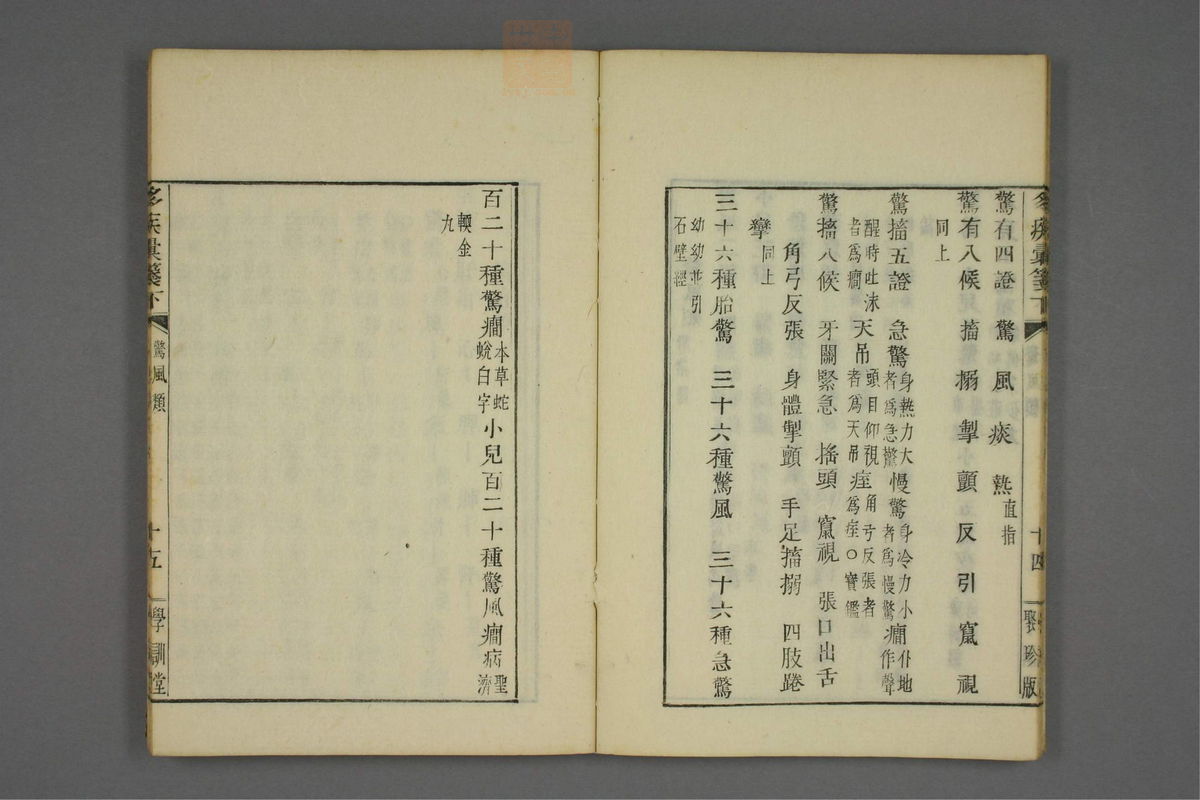 驚有四證 驚 風 痰 熱直指
驚有八候 搐 搦 掣 顫 反 引 竄 視
同上
驚搐五證 急驚身熱力大者爲急驚慢驚身冷力小者爲慢驚癎仆地作聲
醒時吐沫者爲癎天吊頭目仰視者爲天吊痓角弓反張者爲痓○寶鑑
驚搐八候 牙關緊急 搖頭 竄視 張口出舌
角弓反張 身體掣顫 手足搐搦 四肢踡
攣同上
三十六種胎驚 三十六種驚風 三十六種急驚
幼幼並引石壁經
十四
聚珍版
百二十種驚癎本草蛇蛻白字小兒百二十種驚風癎病聖濟
九
金
彙箋下
驚風類
十五
學訓堂